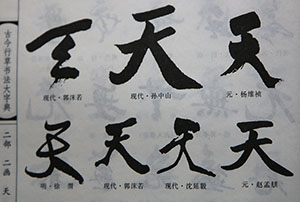 古今行草书法大字典
二部 二画 天
天 天 天
现代·郭沫若 现代·孙中山 元·杨维桢
天 天 天 天
明·徐渭 现代·郭沫若 现代·沈延毅 元·赵孟頫